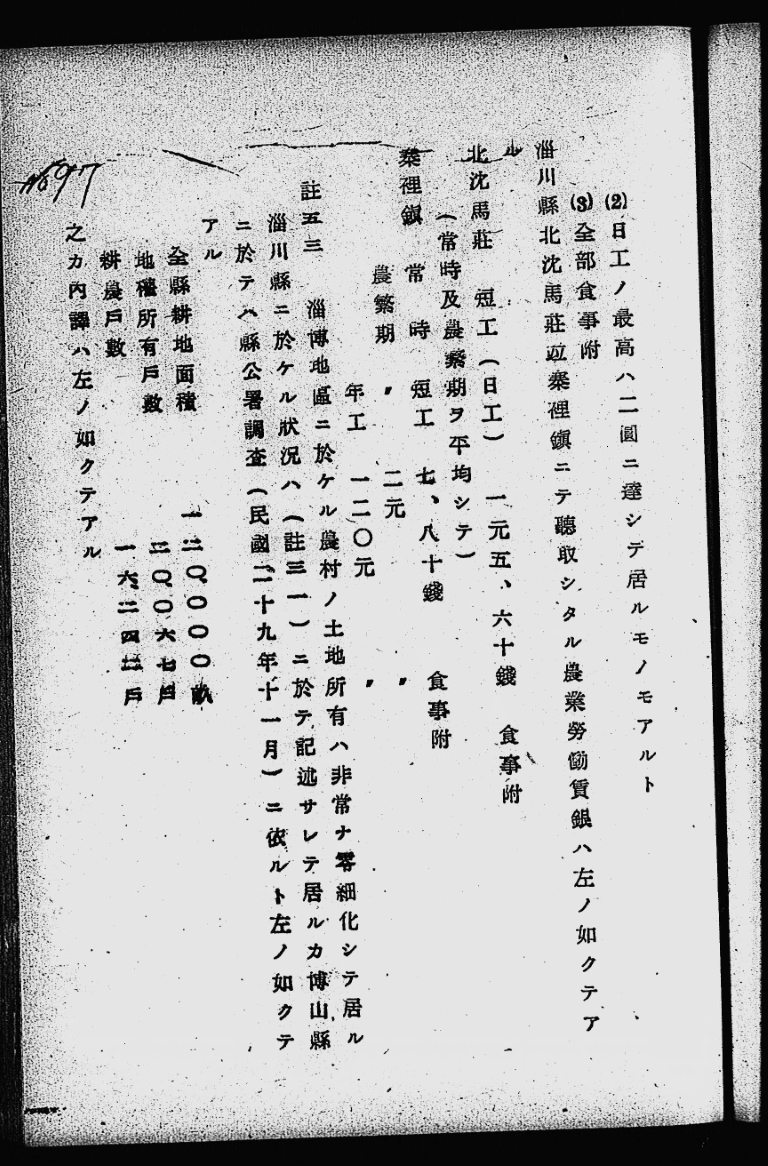 (2)日工ノ最高ハ二圓ニ達シデ居ルモノモアルト
(3)全部食事附
淄川縣北沈馬莊並寨裡鎭ニテ聽取シタル農業勞働賃銀ハ左ノ如クテア
ル
北沈馬莊　短工(日工)　一元五、六十錢　食事附
(常時及農繁期ヲ平均シテ)
寨裡鎭　常時　短工　七、八十錢　食事附
農繁期　〃　二元　〃
年工　一二〇元　〃
註五三　淄博地區ニ於ケル農村ノ土地所有ハ非常ナ零細化シテ居ル
淄川縣ニ於ケル狀況ハ(註三一)ニ於テ記述サレテ居ルカ博山縣
ニ於テハ縣公署調査(民國二十九年十一月)ニ依ルト左ノ如クテ
アル
全縣耕地面積　一二〇、〇〇〇畝
地權所有戶數　三〇、〇六七戶
耕農戶數　一六、二四二戶
之カ內譯ハ左ノ如クテアル
No 97